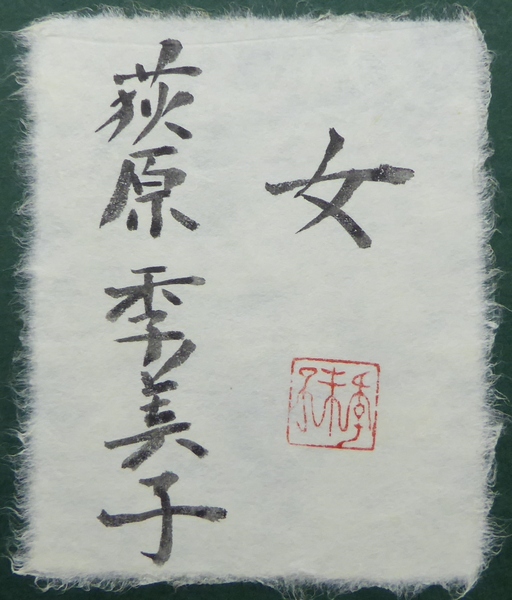 女
荻原季美子